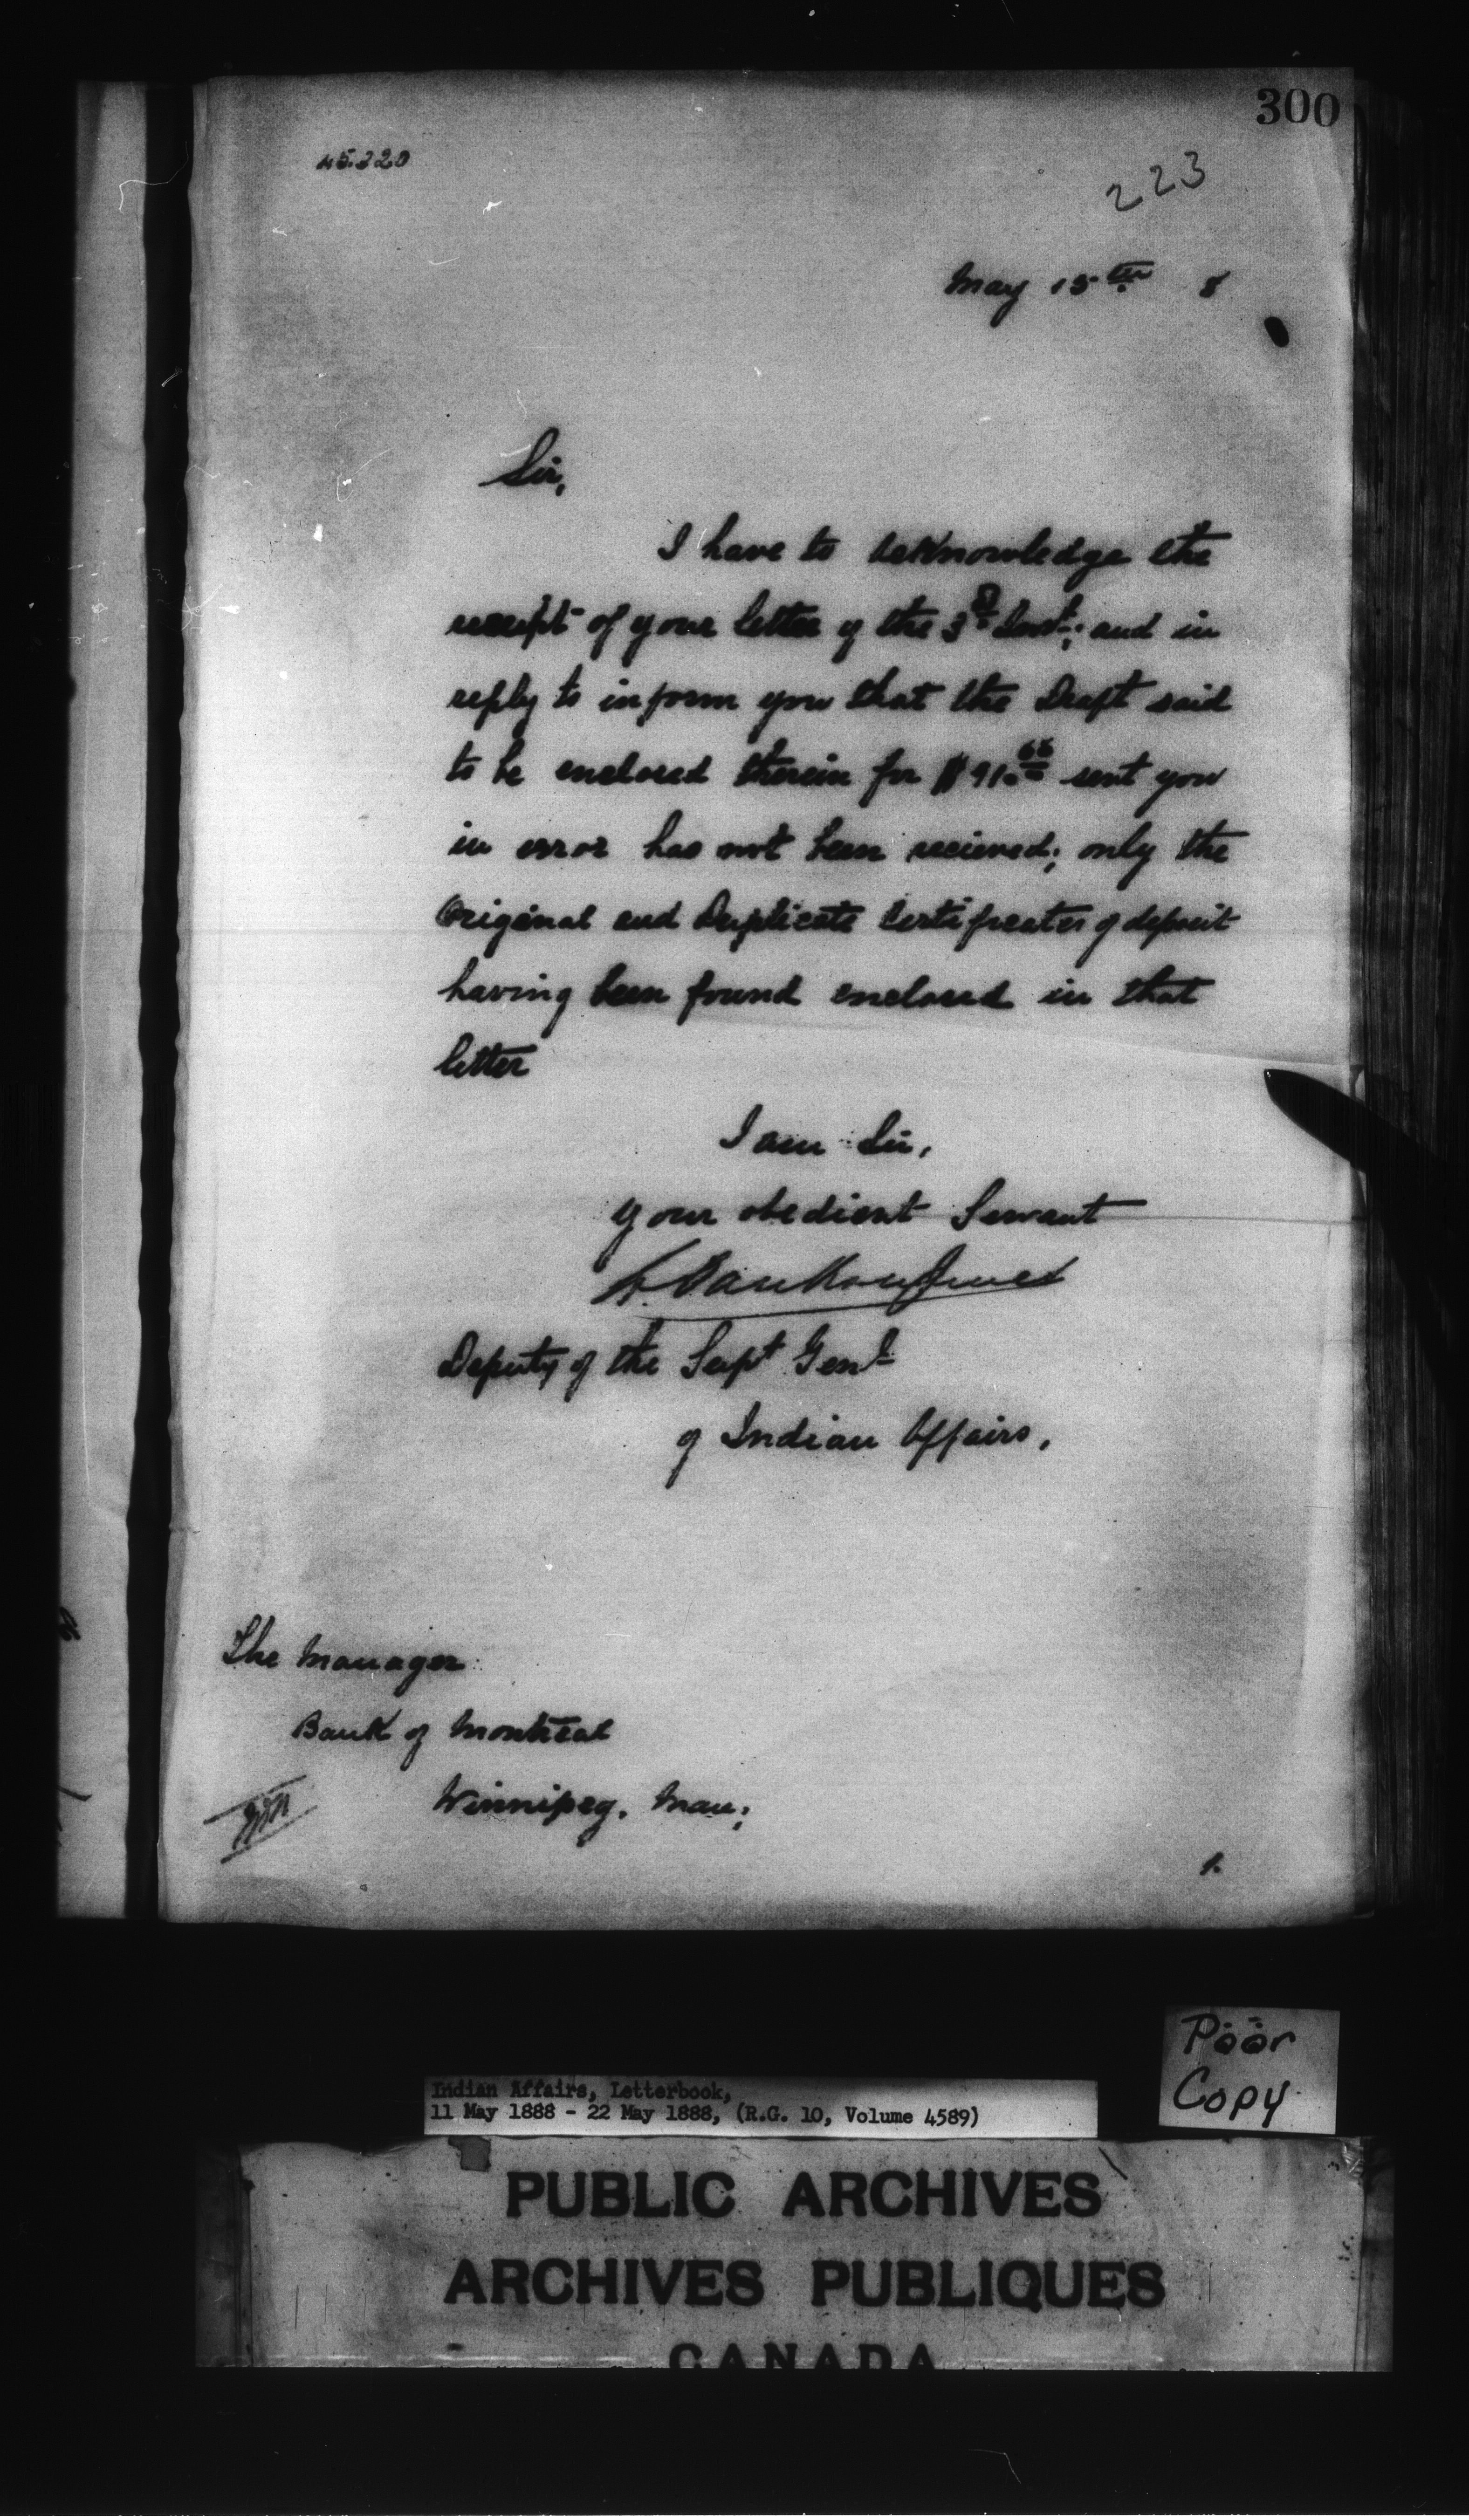 300
45.320
223
May 15th 8
Sir,
I have to acknowledge the
receipt of your letter of the 3d Inst; and in
reply to inform you that the Draft said
to be enclosed therein for $91.66 sent you
in error has not been recieved; only the
Original and Duplicate Certificates of deposit
having been found enclosed in that
letter
I am Sir,
your obedient Servant
L. Vankoughnet
Deputy of the Supt Genl
of Indian Affairs.
The Manager
Bank of Montreal
Winnipeg. Man;
1.
Poor
Copy
Indian Affairs, Letterbook,
11 May 1888 - 22 May 1888, (R.G. 10, Volume 4589)
PUBLIC ARCHIVES
ARCHIVES PUBLIQUES
CANADA